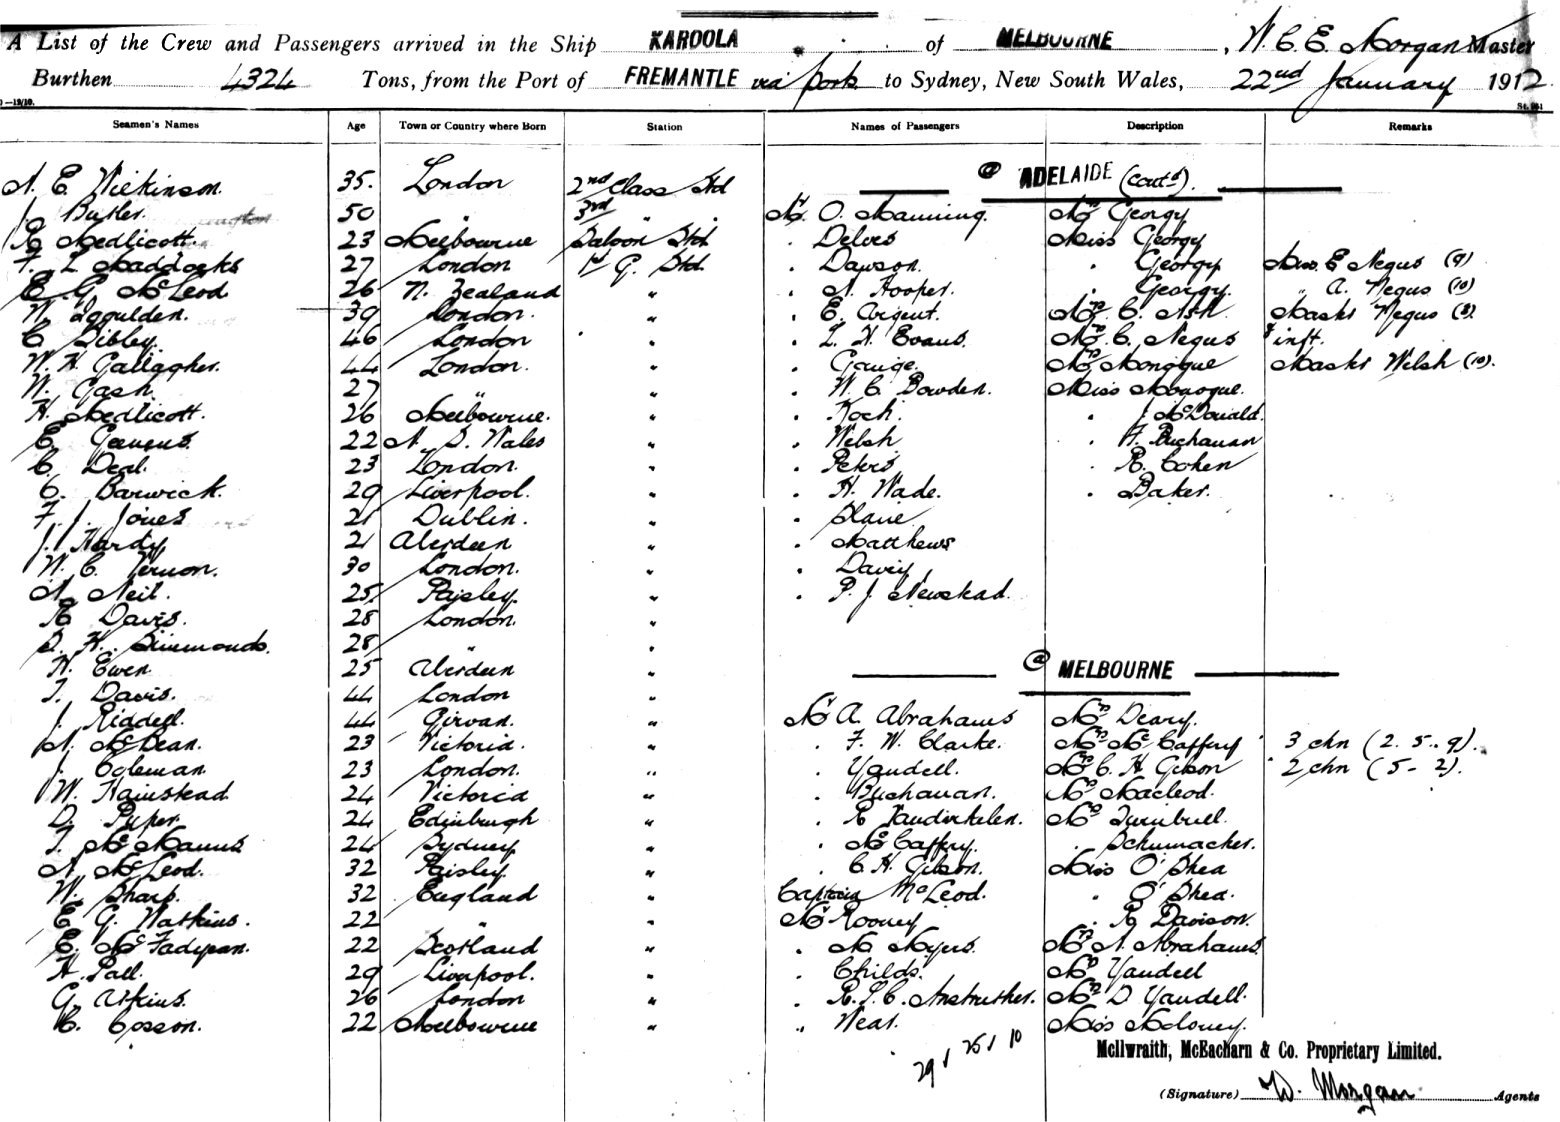 A List of the Crew and Passengers arrived in the Ship KAROOLA of MELBOURNE, W. C. E. Morgan Master
Burthen 4324 Tons, from the Port of FREMANTLE via ports to Sydney, New South Wales, 22nd January 1912.
Seamen's Names Age Town or Country where Born Station Names of Passengers Description Remarks
@ ADELAIDE (contd).
A. E. Wilkinson 35. London 2nd Class Std
J. Butler. 50 " 3rd " " Mr O. Manning. Mrs Georgy
R Medlicott. 23 Melbourne Saloon Std " Delves Miss Georgy
F. L Maddocks 27 London 1st G. Std. " Dawson. " Georgy Miss E Negus (9)
E. G McLeod 26 N. Zealand " " A. Hooper. " Georgy. " A. Negus (10)
N. Goulden. 39 London. " " E. Argent. Mrs C. Ash Mastr Negus (8)
C Sibley. 46 London " " L. H. Evans. Mrs C. Negus & inft.
W. H. Gallagher. 44 London. " " Gauge. Mrs Monogue Mastr Welsh (10).
W. Gash 27 " " " W. C. Bowden. Miss Monogue.
H. Medlicott. 26 Melbourne. " " Koch. " J. McDonald.
E. Geevens. 22 N. S. Wales " " Welsh " F. Buchanan
C. Deal. 23 London. " " Peters " R. Cohen
C. Barwick. 29 Liverpool. " " H. Wade. " Baker.
F. J. Jones 21 Dublin. " " Slane
J. Hardy 21 Aberdeen " " Matthews
W. C. Vernon. 30 London. " " Davey
A. Neil. 25 Paisley. " " P. J. Newstead.
R Davis. 28 London. "
S. H. Simmonds. 28 " "
H. Ewen 25 Aberdeen "
@ MELBOURNE
T. Davis. 44 London "
J. Riddell. 44 Girvan. " Mr A. Abrahams Mrs Deary.
A. McBean. 23 Victoria. " " F. W. Clarke. Mrs McCaffery 3 chn (2. 5.. 9).
J. Coleman 23 London. " " Yandell. Mrs C. H Gibson 2 chn (5 - 2).
W. Hainstead 24 Victoria " " Buchanan. Mrs Macleod.
D. Piper. 24 Edinburgh " " R Vanderkelen. Mrs Turnbull.
T. McManus 24 Sydney " " McCaffery. " Schumacker.
A. McLeod. 32 Paisley. " " C. H. Gibson. Miss O'Shea
W. Sharp. 32 England " Captain McLeod. " O'Shea.
E. G. Watkins. 22 " " Mr Rooney " R Davison.
E. McFadyean. 22 Scotland " " M Myers. Mrs A. Abrahams
H. Pall. 29 Liverpool. " " Childs. Mrs Yandell
G. Atkins. 26 London " " R. S. C. Anstruther. Mrs D Yandell.
C. Cosson. 22 Melbourne " " Neal. Miss Moloney.
29 / 25 / 10
McIlwraith, McEacharn & Co. Proprietary Limited.
(Signature) W. Morgan Agents